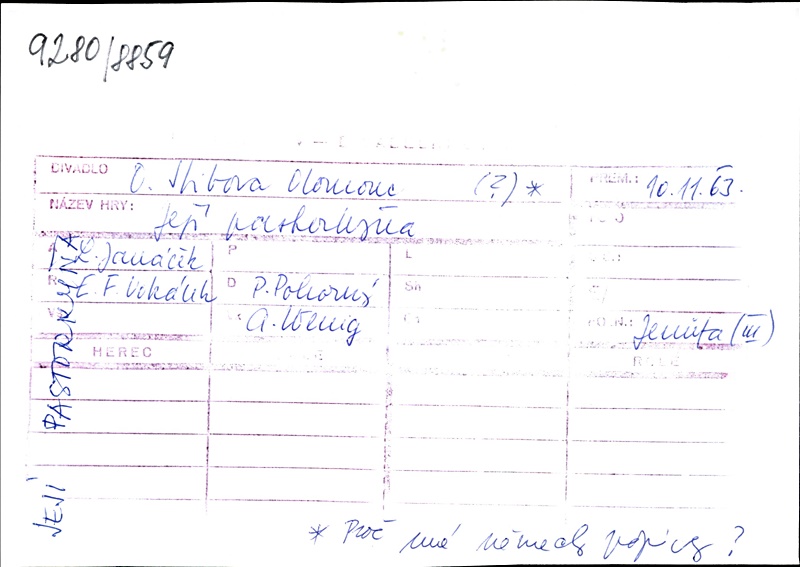 9280/8859
DIVADLO O. Stibora Olomouc (?) * PREM.: 10.11.63.
NÁZEV HRY: Její pastorkyňa
A L. Janáček P L
R E. F. Vokálek D P. Pokorný
A. Wenig POZN.: Jenůfa (III)
HEREC ROLE
JEJÍ PASTORKYŇA
* Proč má německý popisy ?